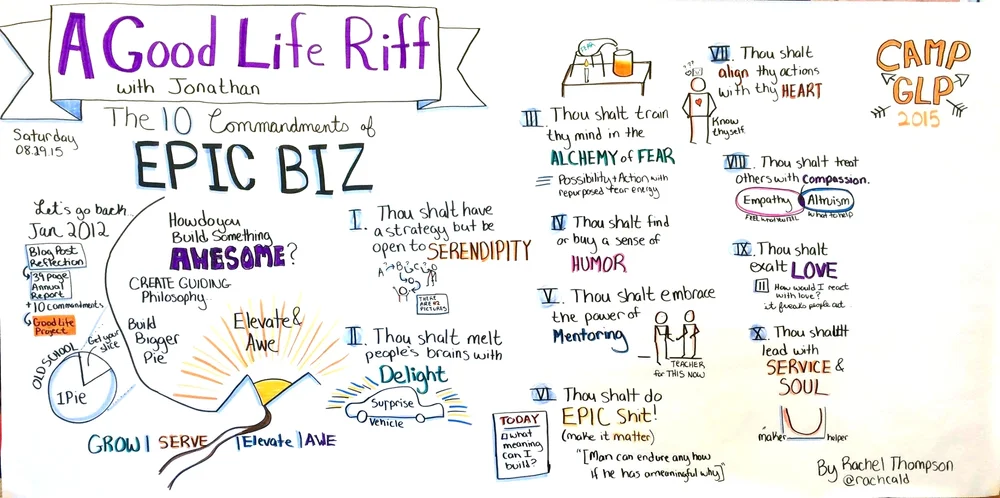 A Good Life Riff
with Jonathan
The 10 Commandments of
EPIC BIZ
Saturday
08.29.15
Let's go back...
Jan 2012
Blog Post
Reflection
39 page
Annual
Report
+10 commandments
Good Life
Project
OLD SCHOOL
Get your
slice
1 Pie
How do you
Build Something
AWESOME?
CREATE GUIDING
Philosophy...
Build
Bigger
Pie
Elevate &
Awe
GROW | SERVE | Elevate | AWE
I. Thou shalt have
a strategy but be
open to SERENDIPITY
A B C
THERE
ARE
PICTURES
II. Thou shalt melt
people's brains with
Delight
Surprise
Vehicle
FEAR
III. Thou shalt train
thy mind in the
ALCHEMY of FEAR
Possibility + Action with
repurposed fear energy
IV Thou shalt find
or buy a sense of
HUMOR
V. Thou shalt embrace
the power of
Mentoring
TEACHER
for THIS NOW
VI Thou shalt do
EPIC Shit!
(make it matter)
"[Man can endure any how
if he has a meaningful why]"
TODAY
what
meaning
can I
build?
VII. Thou shalt
align thy actions
with thy HEART
???
Know
thyself
VIII. Thou shalt treat
others with compassion.
Empathy
Altruism
what to help
IX Thou shalt
exalt LOVE
How would I react
with love?
it freaks people out
X. Thou shalt
lead with
SERVICE &
SOUL
maker
helper
CAMP
GLP
2015
By Rachel Thompson
@rachcald